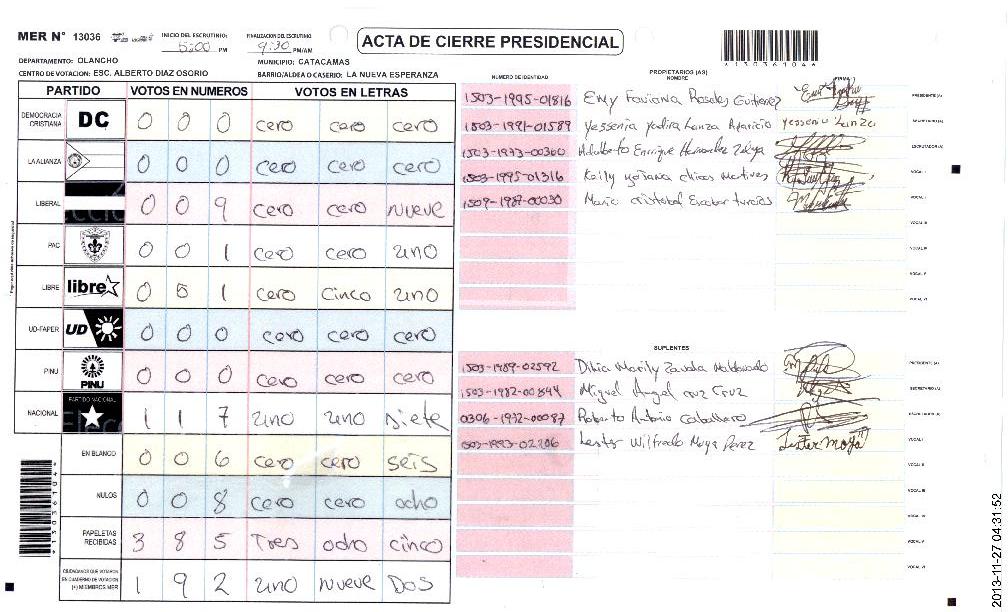 MER N° 13036
INICIO DEL ESCRUTINIO: 5:00 PM
FINALIZACION DEL ESCRUTINIO 9:30 PM/AM
ACTA DE CIERRE PRESIDENCIAL
*130361046*
DEPARTAMENTO: OLANCHO
MUNICIPIO: CATACAMAS
CENTRO DE VOTACION: ESC. ALBERTO DIAZ OSORIO
BARRIO/ALDEA O CASERIO: LA NUEVA ESPERANZA
PARTIDO VOTOS EN NUMEROS VOTOS EN LETRAS
DEMOCRACIA CRISTIANA DC 0 0 0 cero cero cero
LA ALIANZA 0 0 0 cero cero cero
LIBERAL 0 0 9 cero cero nueve
PAC 0 0 1 cero cero uno
LIBRE libre 0 5 1 cero cinco uno
UD-FAPER UD 0 0 0 cero cero cero
PINU PINU 0 0 0 cero cero cero
NACIONAL PARTIDO NACIONAL 1 1 7 uno uno siete
EN BLANCO 0 0 6 cero cero seis
NULOS 0 0 8 cero cero ocho
PAPELETAS RECIBIDAS 3 8 5 Tres ocho cinco
CIUDADANOS QUE VOTARON EN CUADERNO DE VOTACION (+) MIEMBROS MER 1 9 2 uno nueve Dos
NUMERO DE IDENTIDAD PROPIETARIOS (AS) NOMBRE FIRMA
1503-1995-01816 Eny Fabiana Rosales Gutierrez PRESIDENTE (A)
1503-1991-01589 Yessenia Yadira Lanza Aparicio Yessenia Lanza SECRETARIO (A)
1503-1973-00360 Adalberto Enrique Hernandez Zelaya ESCRUTADOR (A)
1503-1995-01316 Keily Yohana chicas Martines VOCAL I
1509-1987-00030 Maria cristobal Escobar turcios VOCAL II
VOCAL III
VOCAL IV
VOCAL V
VOCAL VI
SUPLENTES
1503-1989-02592 Dilia Marily Zavala Maldonado PRESIDENTE (A)
1503-1982-00844 Miguel Angel cruz Cruz SECRETARIO (A)
0306-1972-00087 Roberto Antonio Caballero ESCRUTADOR (A)
1503-1993-02206 Lester Wilfredo Moya Perez Lester Moya VOCAL I
VOCAL II
VOCAL III
VOCAL IV
VOCAL V
VOCAL VI
2013-11-27 04:31:52